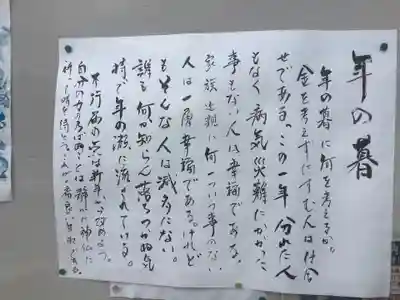 年の暮
年の暮に何を考えるか。
金を考えずにすむ人は仕合
せである。この一年 分れた人
もなく 病気 災難にかかった
事もない人は幸福である。
家族 近親に何一つ事のない
人は一層幸福である。けれど
もそんな人は滅多にない。
誰も何か知らん落ちつかぬ気
持で年の瀬に流されている。
不行届の点は新年からあらため
自分の力の及ばぬことは静かに神仏に
祈って時を待つ